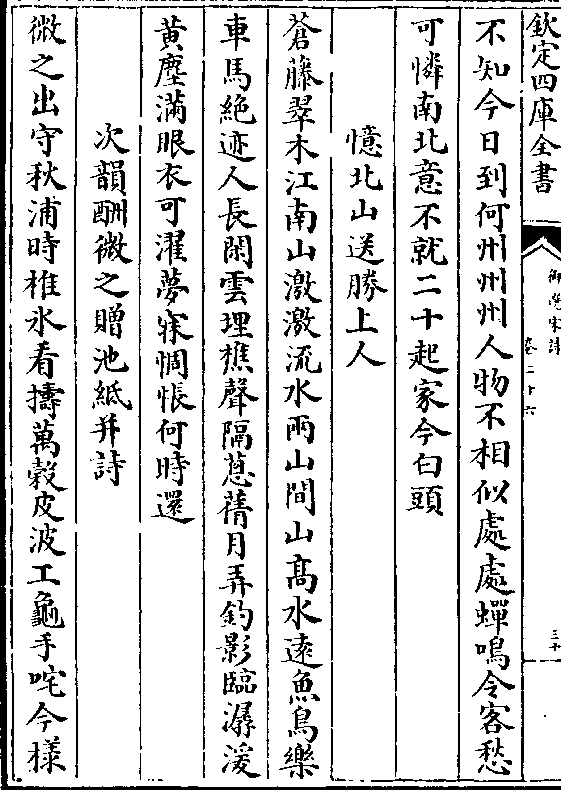 欽定四庫全書
御選宋詩
卷二十六
三十
不知今日到何州州州人物不相似處處蟬鳴令客愁
可憐南北意不就二十起家今白頭
憶北山送勝上人
蒼藤翠木江南山激激流水兩山間山髙水遠魚鳥樂
車馬絶迹人長閑雲埋樵聲隔葱蒨月弄釣影臨潺湲
黄塵滿眼衣可濯夢寐惆悵何時還
次韻酬微之贈池紙并詩
微之出守秋浦時椎氷看擣萬榖皮波工龜手咤今樣